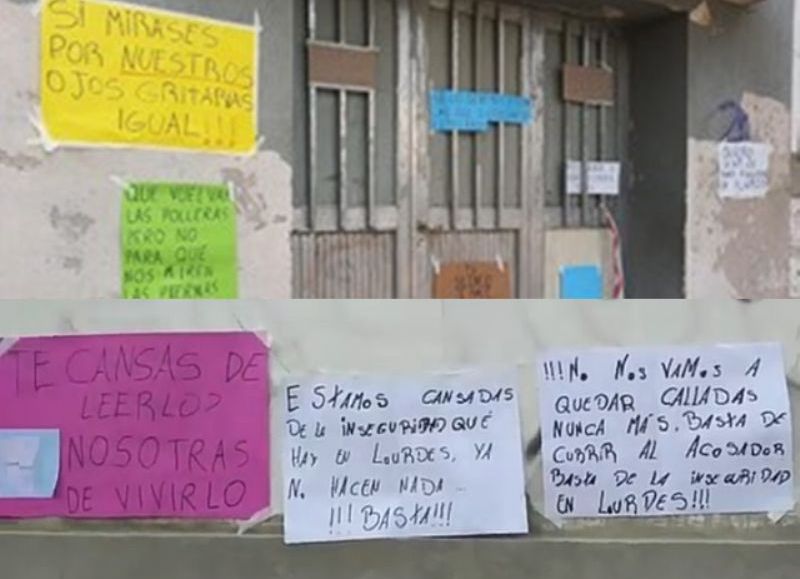 SI MIRASES
POR NUESTROS
OJOS GRITARIAS
IGUAL!!!
QUE VUELVAN
LAS POLLERAS
PERO NO
PARA QUÉ
NOS MIREN
LAS PIERNAS
TE CANSAS DE
LEERLO?
NOSOTRAS
DE VIVIRLO
ESTAMOS CANSADAS
DE LA INSEGURIDAD QUÉ
HAY EN LOURDES, YA
NO HACEN NADA...
!!!BASTA!!!
!!!NO NOS VAMOS A
QUEDAR CALLADAS
NUNCA MÁS. BASTA DE
CUBRIR AL ACOSADOR
BASTA DE LA INSEGURIDAD
EN LOURDES!!!